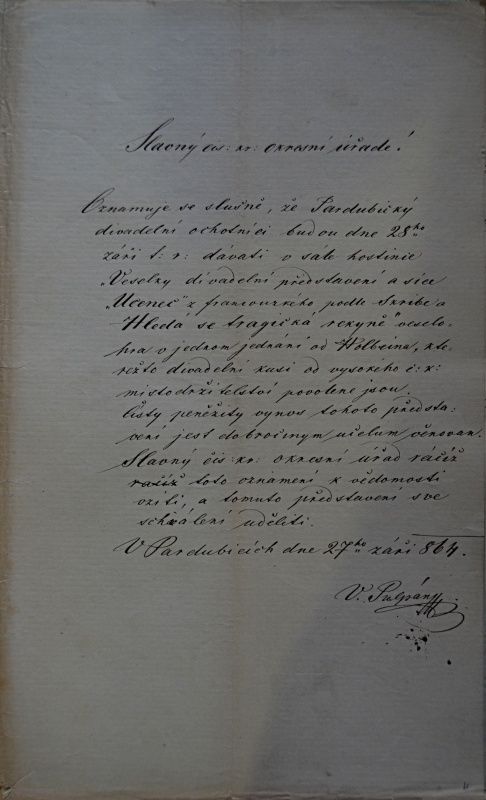 Slavný čís: kr: okresní úřade!
Oznamuje se slušně, že Pardubický
divadelní ochotníci budou dne 28ho
září t: r: dávati v sále hostinie
„Veselky divadelní představení a sice
„Učenec" z francouzkého podle Skribe a
„Hledá se tragická rekyně" veselo-
hra v jednom jednání od Holbeina, kte-
režto divadelní kusi od vysokého c: k:
mistodržitelství povolené jsou.
Čistý peněžitý vynos tohoto předsta-
vení jest dobročinym učelum věnovan.
Slavný čís: kr: okresní úřad ráčíž
račíž toto oznamení k vědomosti
vzíti, a tomuto představení sve
schválení uděliti.
V Pardubicích dne 27ho září 864.
V.